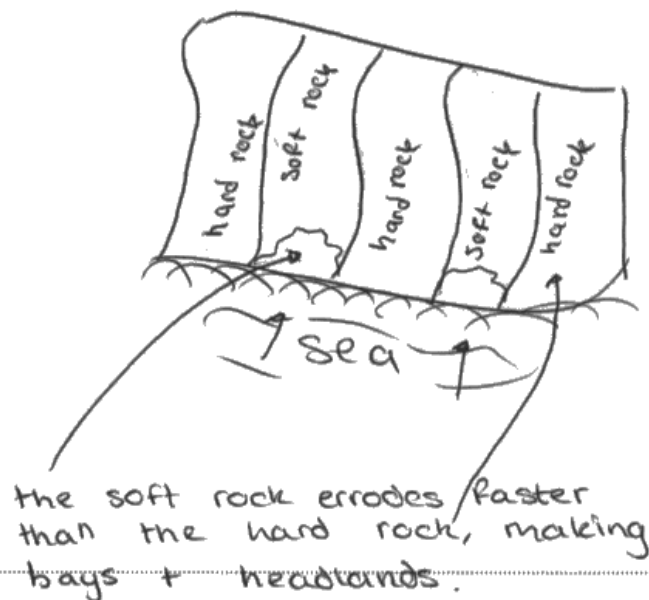 hard rock
soft rock
hard rock
soft rock
hard rock
sea
the soft rock errodes faster
than the hard rock, making
bays + headlands.